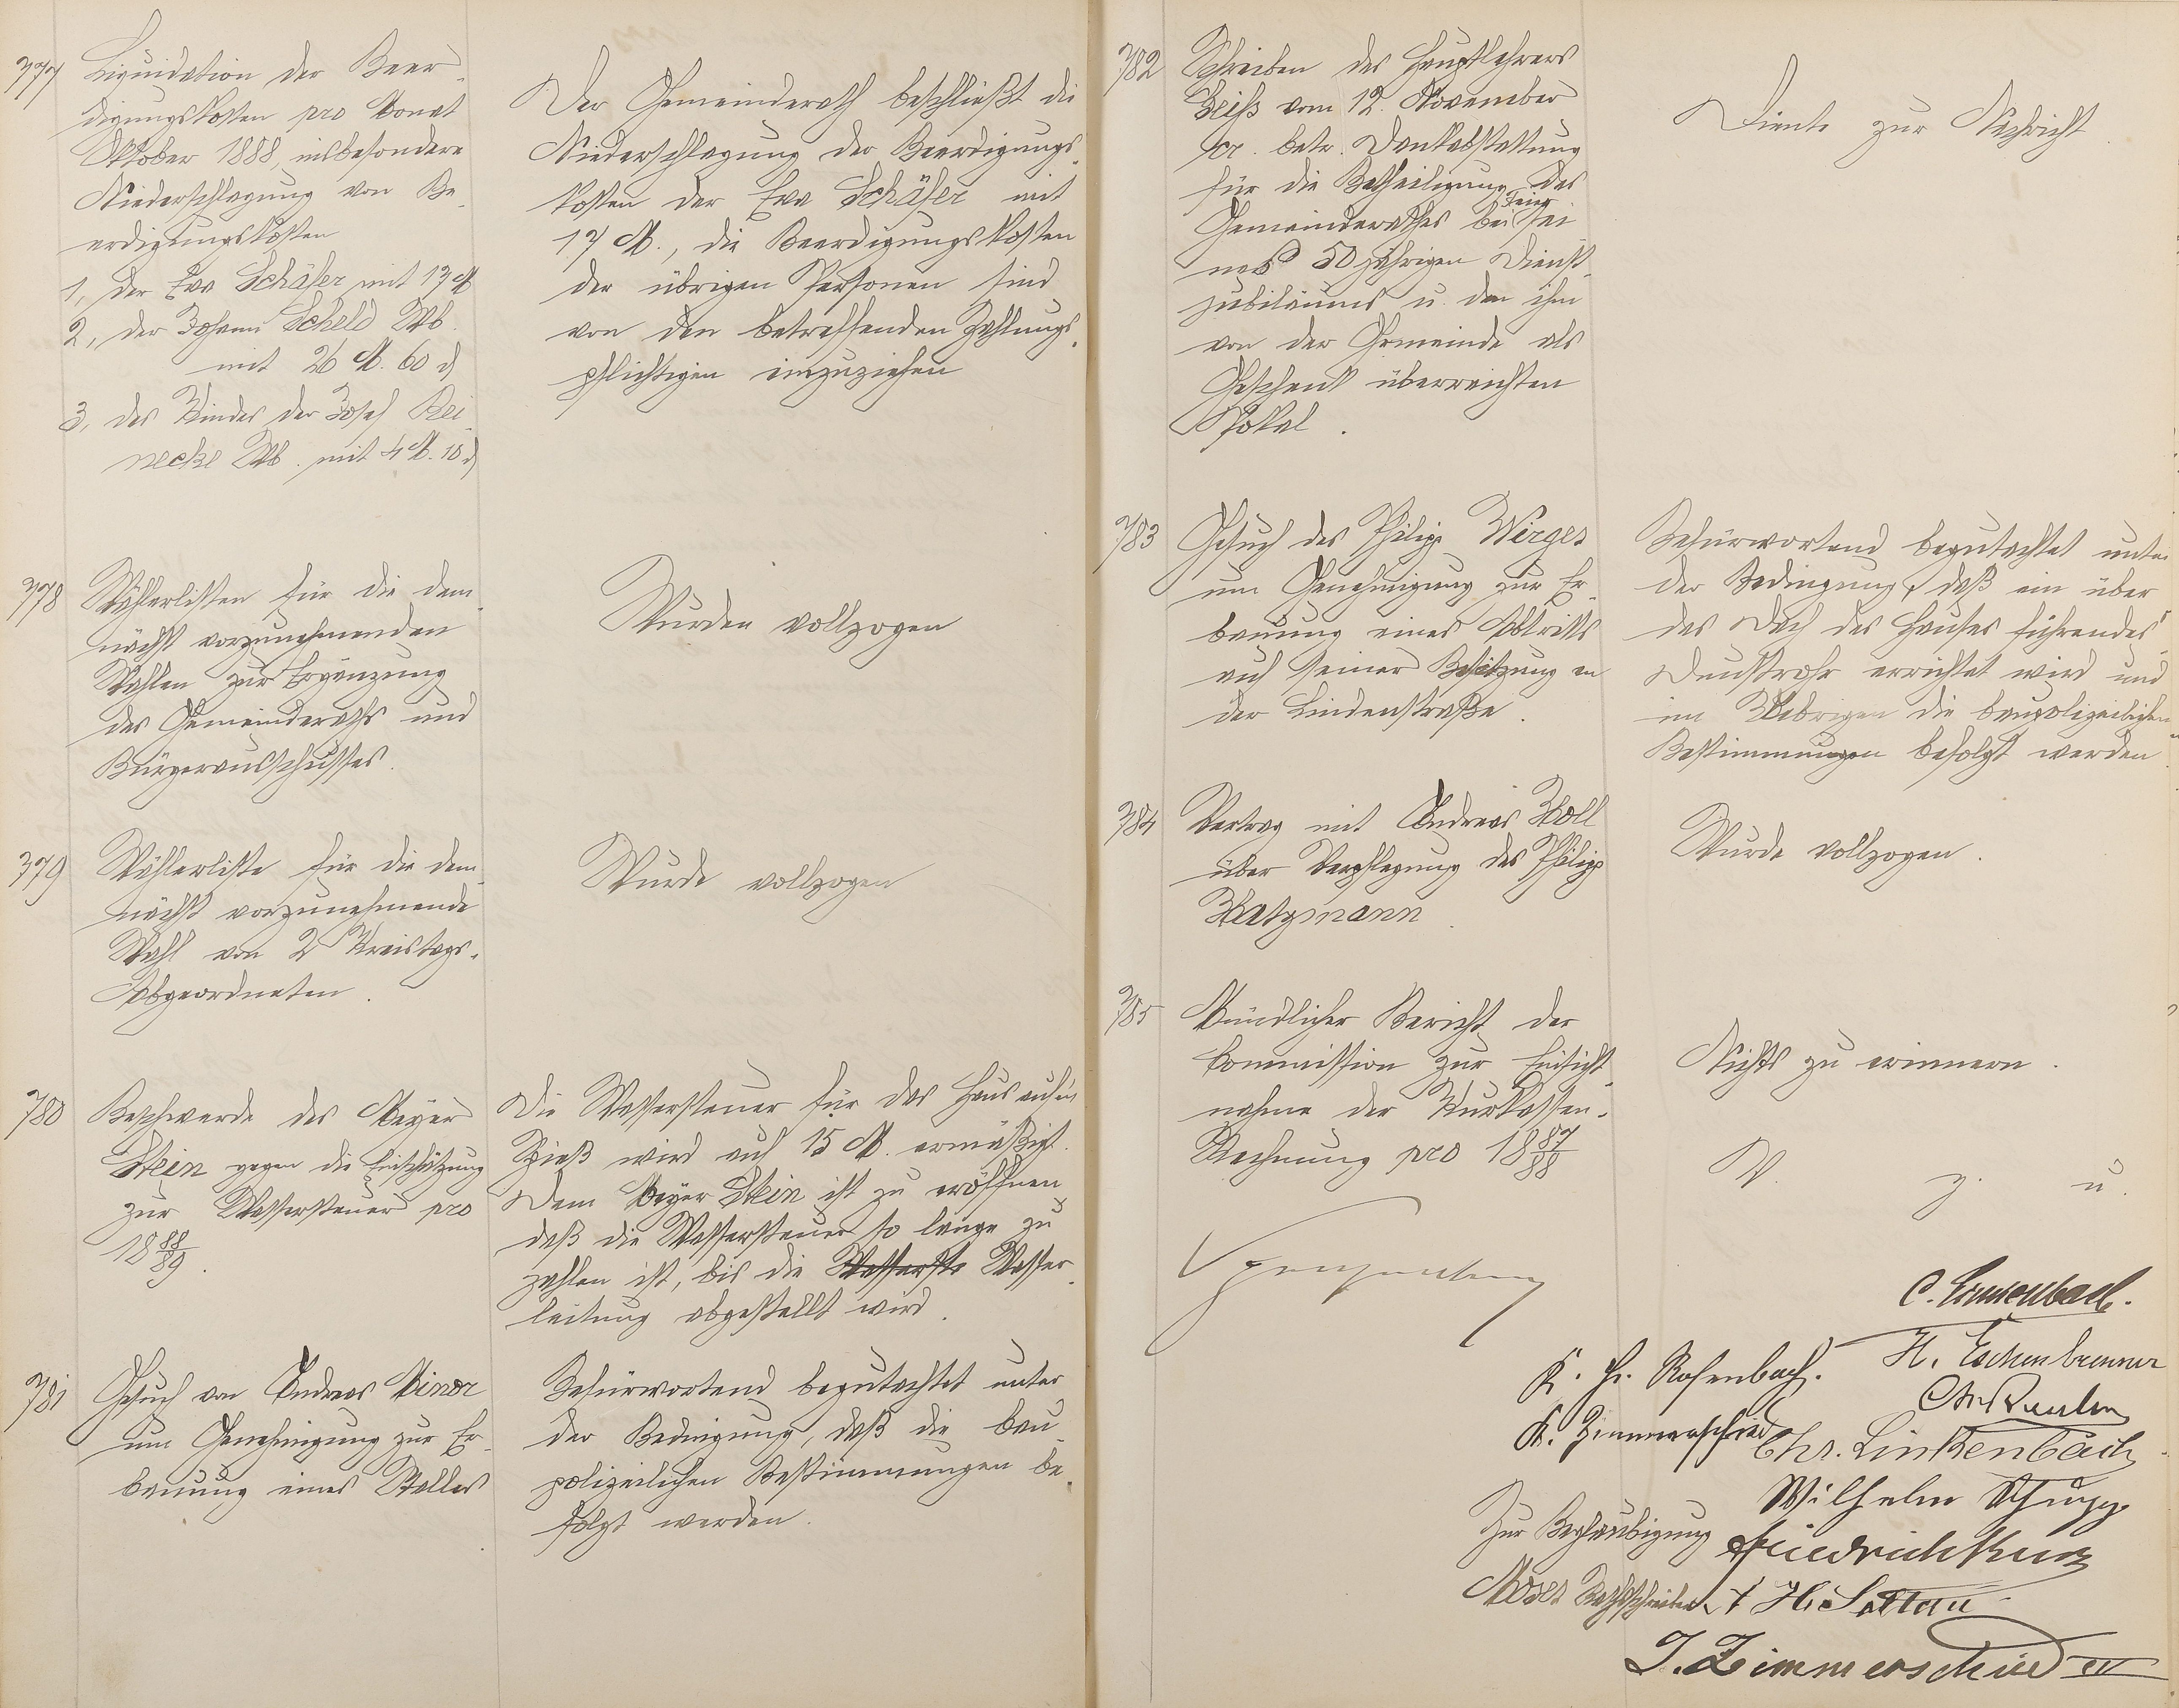 377
Liquidation der Beer-
digungskosten pro Monat
Oktober 1888, insbesondere
Niederschlagung von Be-
erdigungskosten
1, der Eva Schäfer mit 17 M
2, der Johann Scheld Wb.
mit 26 M. 60 d
3, des Kindes der Josef Rei-
necke Wb. mit 4 M. 10 d
Der Gemeinderath beschließt die
Niederschlagung der Beerdigungs-
kosten der Eva Schäfer mit
17 M., die Beerdigungskosten
der übrigen Personen sind
von den betreffenden Zahlungs-
pflichtigen einzuziehen
378
Wählerlisten für die dem-
nächst vorzunehmenden
Wahlen zur Ergänzung
des Gemeinderaths und
Bürgerausschusses.
Wurden vollzogen
379
Wählerliste für die dem-
nächst vorzunehmende
Wahl von 2 Kreistags-
Abgeordneten.
Wurde vollzogen
780
Beschwerde des Meyer
Stein gegen die Einschätzung
zur Wassersteuer pro
18 88/89.
Die Wassersteuer für das Haus auf'm
Spieß wird auf 15 M. ermäßigt.
Dem Meyer Stein ist zu eröffnen,
daß die Wassersteuer so lange zu
zahlen ist, bis die Wasserste Wasser-
leitung abgestellt wird.
781
Gesuch von Andreas Minor
um Genehmigung zur Er-
bauung eines Stalles
Befürwortend begutachtet unter
der Bedingung, daß die bau-
polizeilichen Bestimmungen be-
folgt werden.
782
Schreiben des Hauptlehrers
Zeiss vom 12. November
cr. betr. Dankabstattung
für die Betheiligung des
Feier
Gemeinderathes bei sei-
nes 50 jährigen Dienst-
jubiläums u. den ihm
von der Gemeinde als
Geschenk überreichten
Pokal.
Diente zur Nachricht
783
Gesuch des Philipp Wirges
um Genehmigung zur Er-
bauung eines Abtritts
auf seiner Besitzung an
der Lindenstraße.
Befürwortend begutachtet unter
der Bedingung, daß ein über
das Dach des Hauses führendes
Dunstrohr errichtet wird und
im Uebrigen die baupolizeilichen
Bestimmungen befolgt werden
784
Vertrag mit Andreas Noll
über Verpflegung des Philipp
Katzmann.
Wurde vollzogen.
785
Mündlicher Bericht der
Commission zur Einsicht-
nahme der Kurkassen-
Rechnung pro 18 87/88
Nichts zu erinnern.
V. g. u.
C. Linkenbach.
H. Eschenbrenner
K. Fr. Rosenbach.
K. Zimmerschied
Chr. Linkenbach
Wilhelm Schupp
Zur Beglaubigung
Friedrich Kurz
H. Soltau
J. Zimmerschied IV